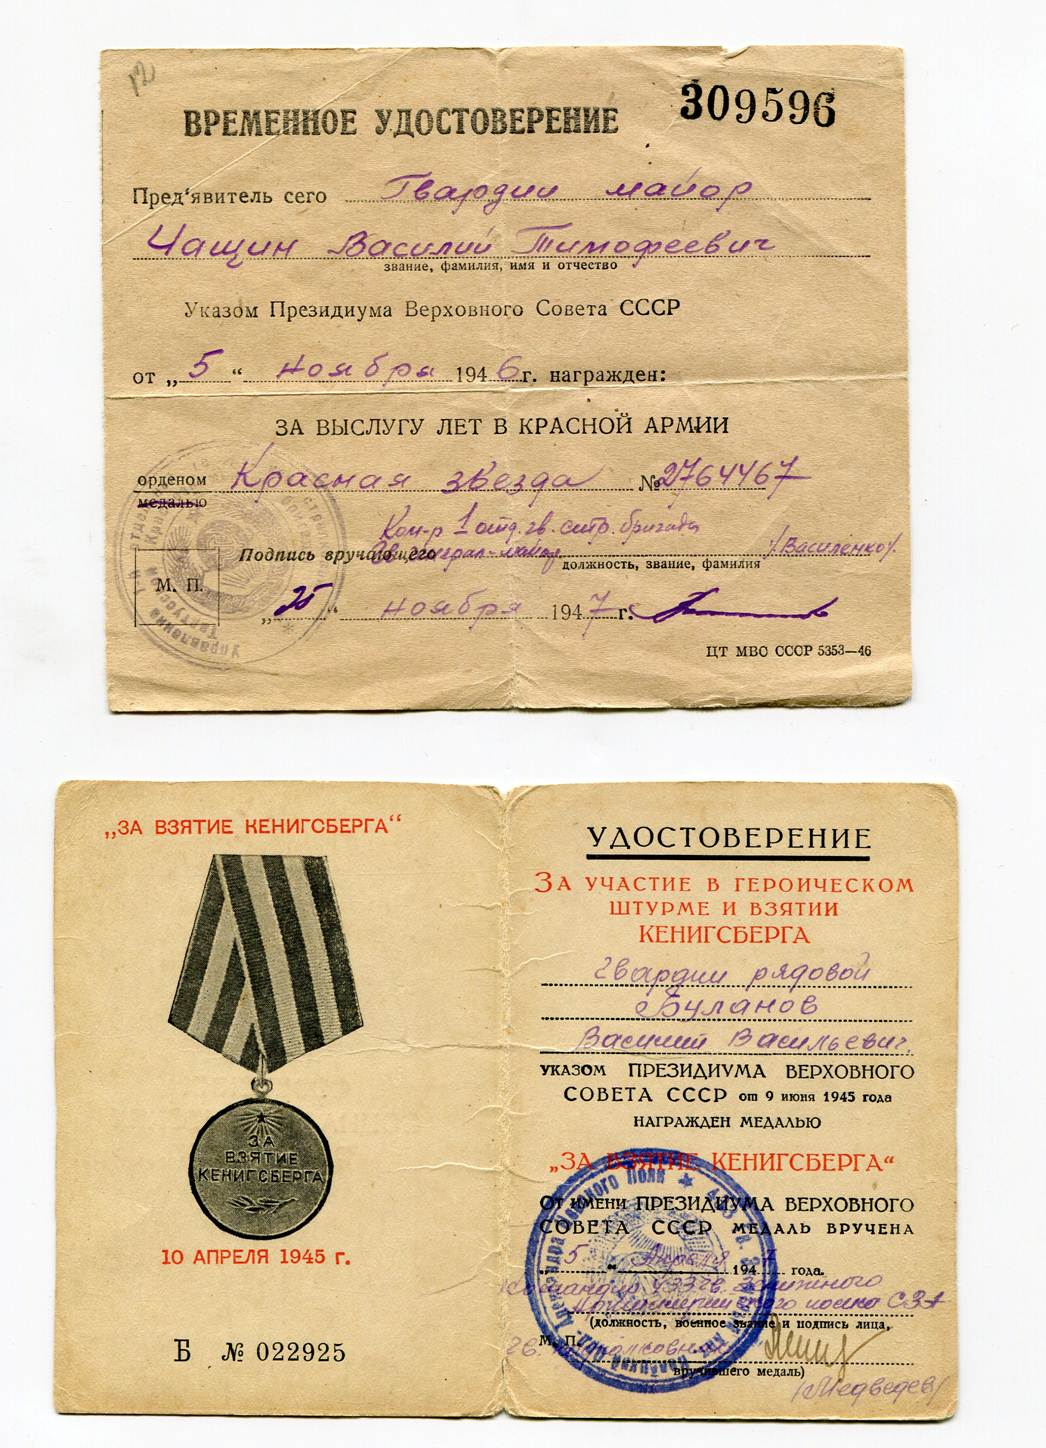 12
ВРЕМЕННОЕ УДОСТОВЕРЕНИЕ
309596
Пред'явитель сего Гвардии майор
Чащин Василий Тимофеевич
звание, фамилия, имя и отчество
Указом Президиума Верховного Совета СССР
от „5“ ноября 1946 г. награжден:
ЗА ВЫСЛУГУ ЛЕТ В КРАСНОЙ АРМИИ
орденом Красная звезда № 2764467
медалью
Ком-р 1 отд. гв. стр. бригады
Подпись вручающего Гв. генерал-майор /Василенко/
должность, звание, фамилия
М. П.
„25“ ноября 1947 г.
ЦТ МВС СССР 5353—46
„ЗА ВЗЯТИЕ КЕНИГСБЕРГА“
ЗА
ВЗЯТИЕ
КЕНИГСБЕРГА
10 АПРЕЛЯ 1945 г.
Б № 022925
УДОСТОВЕРЕНИЕ
ЗА УЧАСТИЕ В ГЕРОИЧЕСКОМ
ШТУРМЕ И ВЗЯТИИ
КЕНИГСБЕРГА
гвардии рядовой
Буланов
Василий Васильевич.
УКАЗОМ ПРЕЗИДИУМА ВЕРХОВНОГО
СОВЕТА СССР от 9 июня 1945 года
НАГРАЖДЕН МЕДАЛЬЮ
„ЗА ВЗЯТИЕ КЕНИГСБЕРГА“
ОТ ИМЕНИ ПРЕЗИДИУМА ВЕРХОВНОГО
СОВЕТА СССР МЕДАЛЬ ВРУЧЕНА
„5“ апреля 1947 года.
Командир гв. Зенитного
Артиллерийского полка СЗА
(должность, военное звание и подпись лица,
М. П. гв. подполковник
вручившего медаль)
/Медведев/